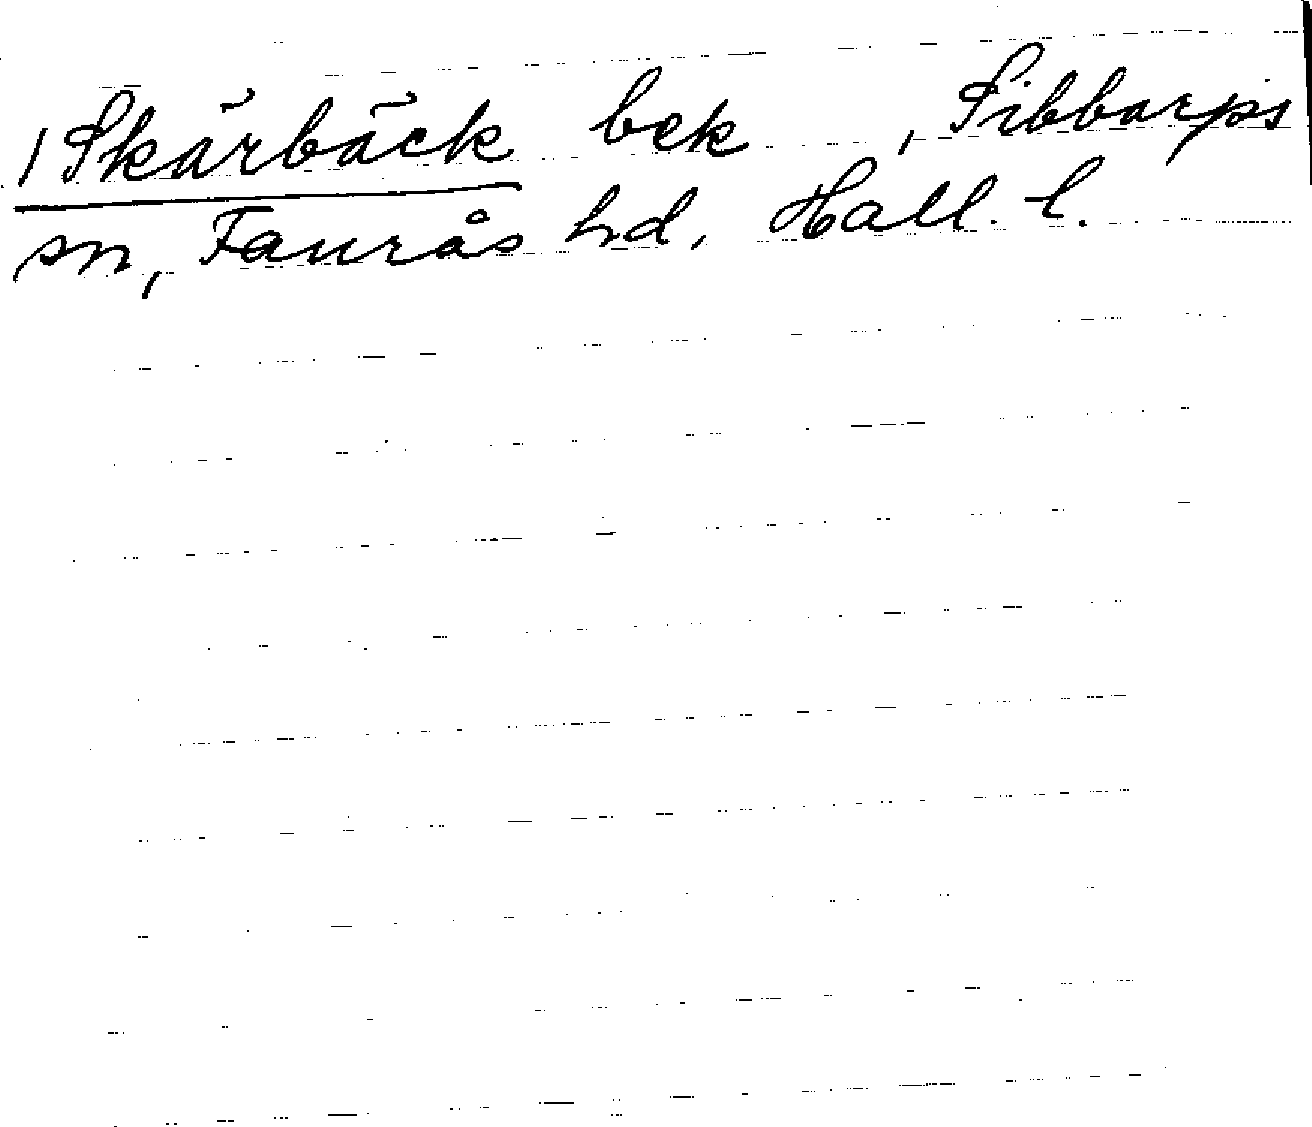 /Skärbäck bek , Sibbarps
sn, Faurås hd, Hall. l.